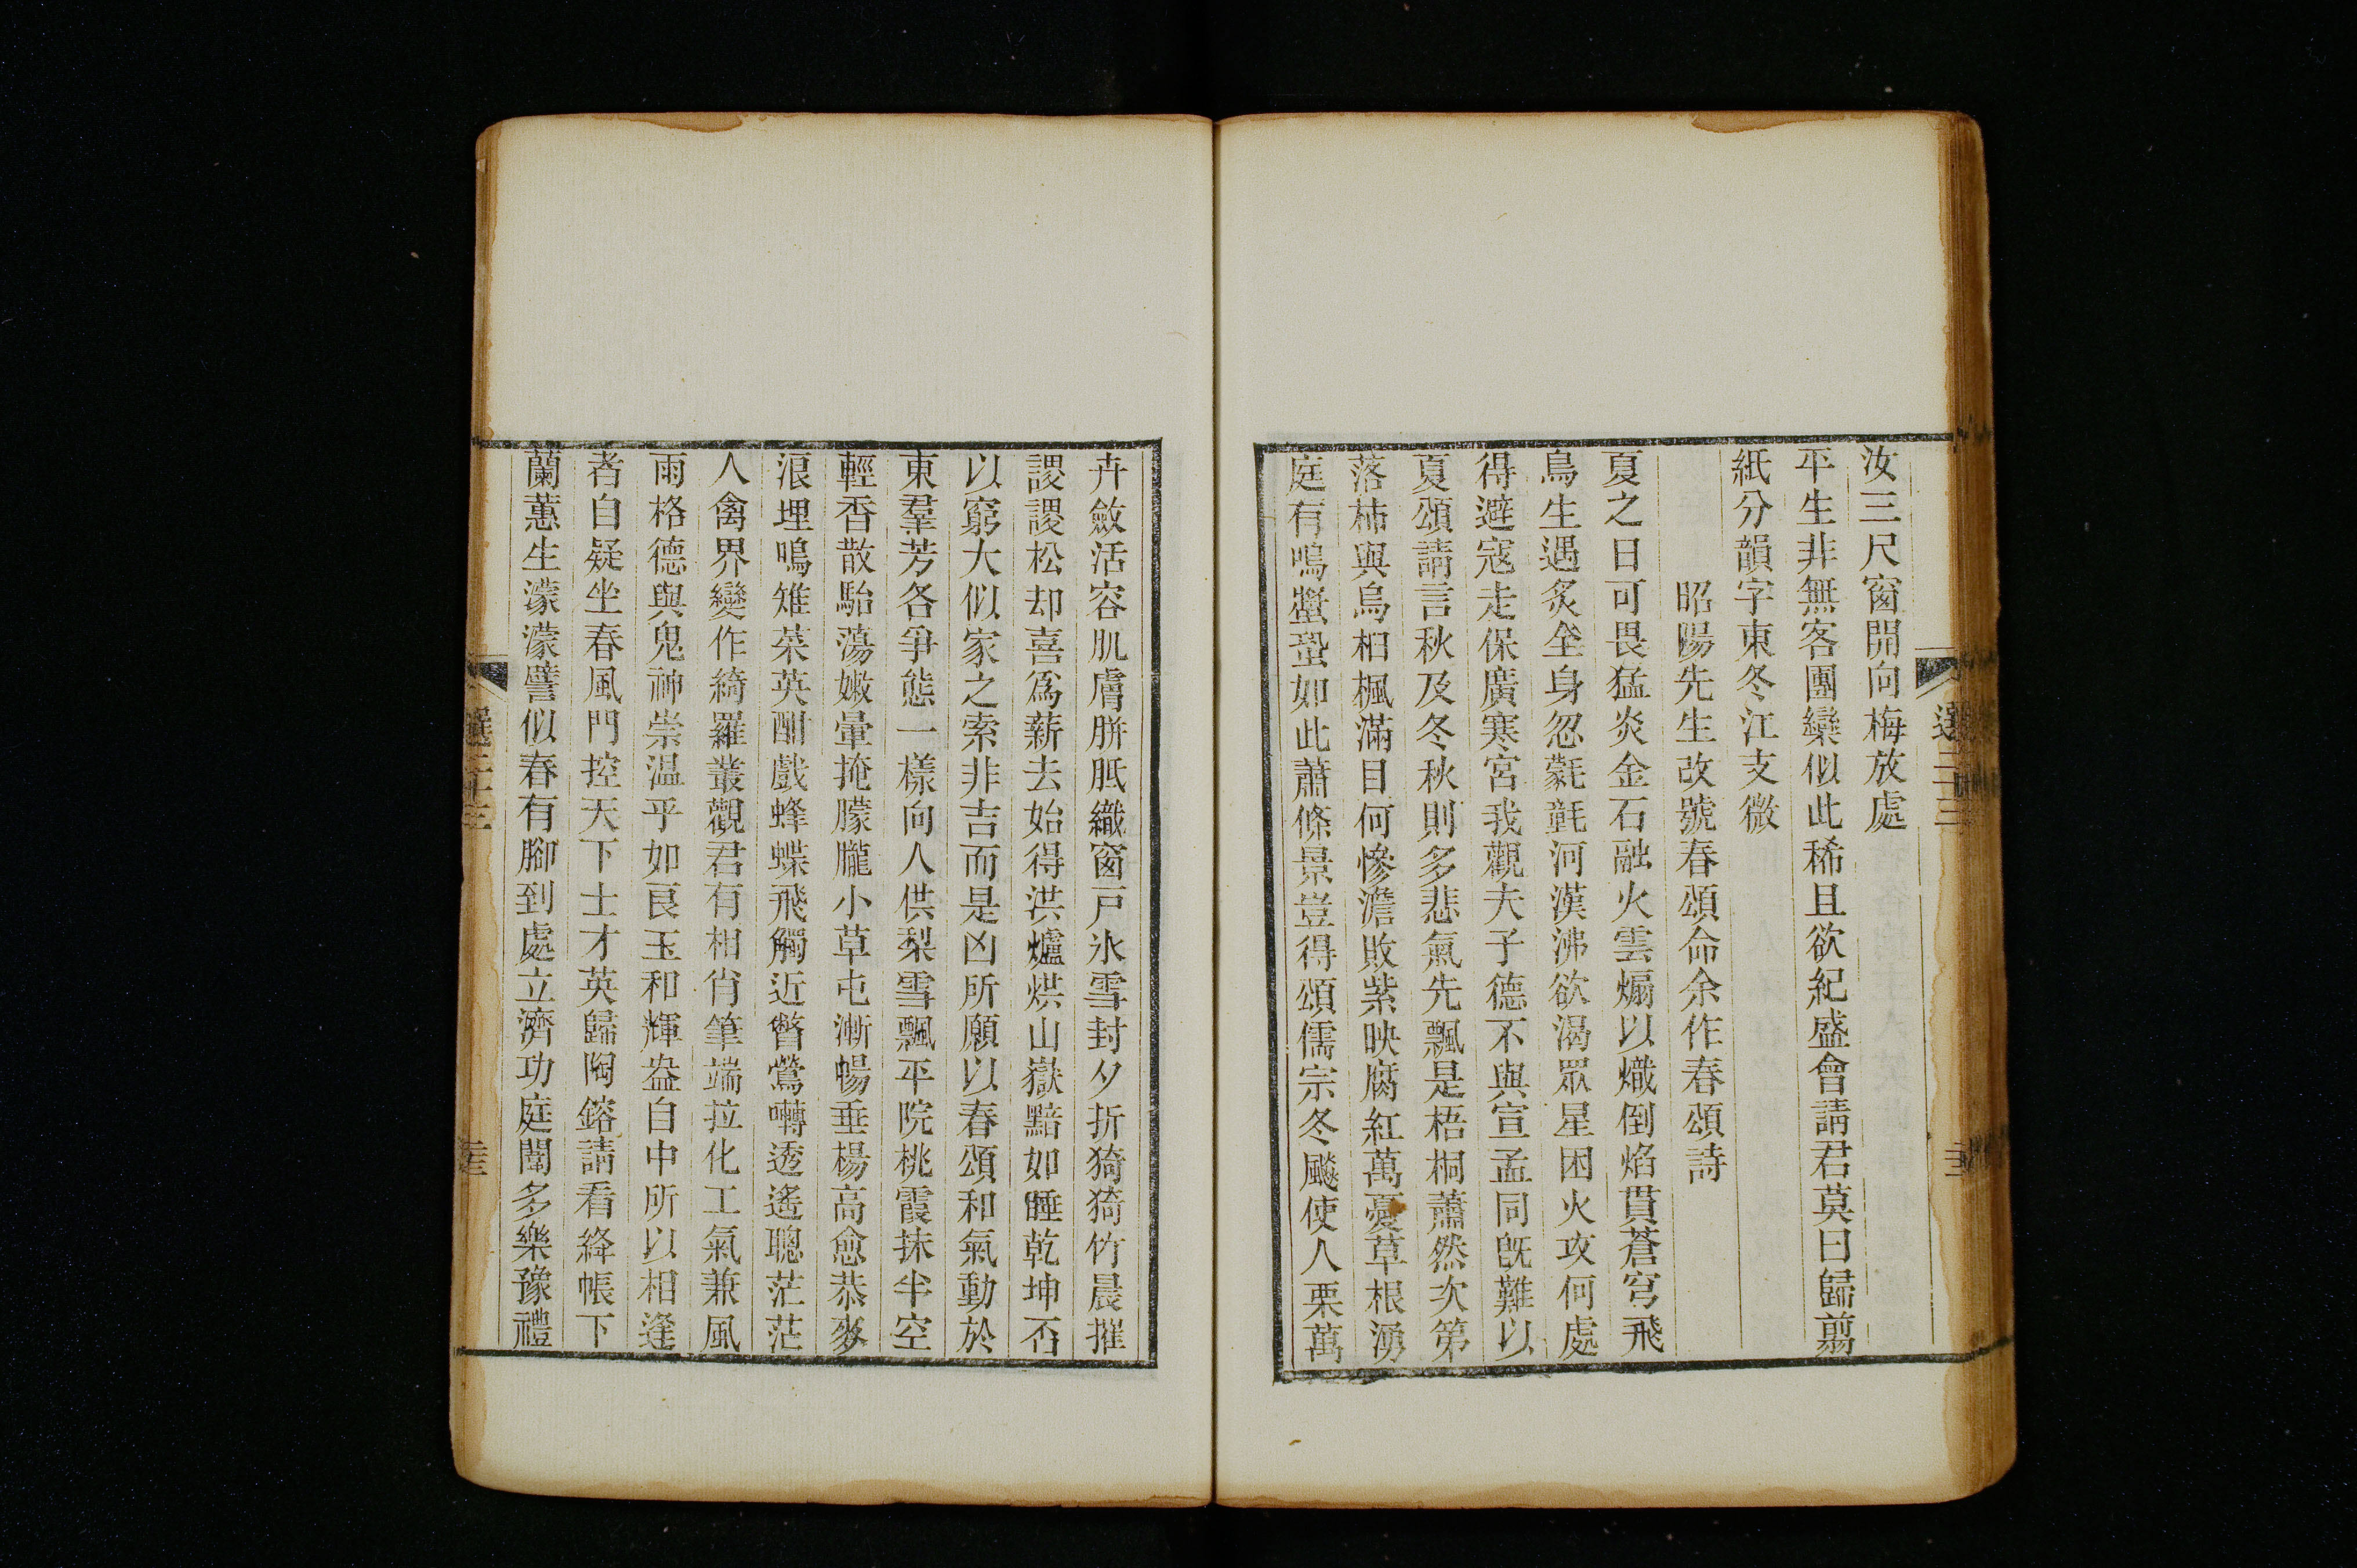 汝三尺窗開向梅放處
平生非無客團欒似此稀且欲紀盛會請君莫曰歸翦
紙分韻字東冬江支微
昭陽先生改號春頌命余作春頌詩
夏之日可畏猛炎金石融火雲煽以熾倒焰貫蒼穹飛
鳥生遇炙坐身忽氋氃河漢沸欲渴眾星困火攻何處
得避寇走保廣寒宮我觀夫子德不與宣孟同既難以
夏頌請言秋及冬秋則多悲氣先飄是梧桐蕭然次第
落柿與烏桕楓滿目何慘澹敗紫映腐紅萬憂草根湧
庭有鳴螿蛩如此蕭條景豈得頌儒宗冬飈使人栗萬
卉斂活容肌膚胼胝織窗戸氷雪封夕折猗猗竹晨摧
謖謖松却喜爲薪去始得洪爐烘山嶽黯如睡乾坤否
以窮大似家之索非吉而是凶所願以春頌和氣動於
東羣芳各爭態一樣向人供梨雪飄平院桃霞抹半空
輕香散駘蕩嫩暈掩朦朧小草屯漸暢垂楊高愈恭麥
浪埋鳴雉菜英酣戲蜂蝶飛觸近瞥鶯囀透遙聰茫茫
人禽界變作綺羅叢觀君有相肖筆端拉化工氣兼風
雨格德與鬼神崇温乎如良玉和輝盎自中所以相逢
者自疑坐春風門控天下士才英歸陶鎔請看絳帳下
蘭蕙生濛濛譬似春有腳到處立濟功庭闈多樂豫禮